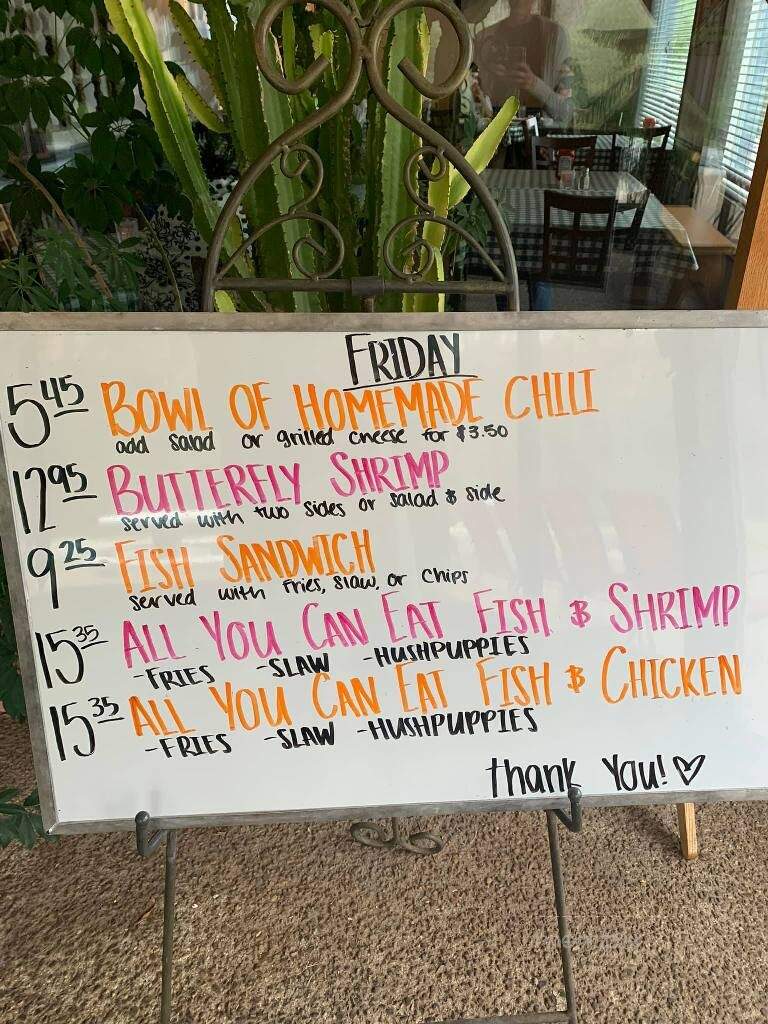 FRIDAY
5 45 BOWL OF HOMEMADE CHILI
add salad or grilled cheese for $3.50
12 95 BUTTERFLY SHRIMP
served with two sides or salad & side
9 25 FISH SANDWICH
served with fries, slaw, or chips
15 35 ALL YOU CAN EAT FISH & SHRIMP
-FRIES -SLAW -HUSHPUPPIES
15 35 ALL YOU CAN EAT FISH & CHICKEN
-FRIES -SLAW -HUSHPUPPIES
thank you! ♡